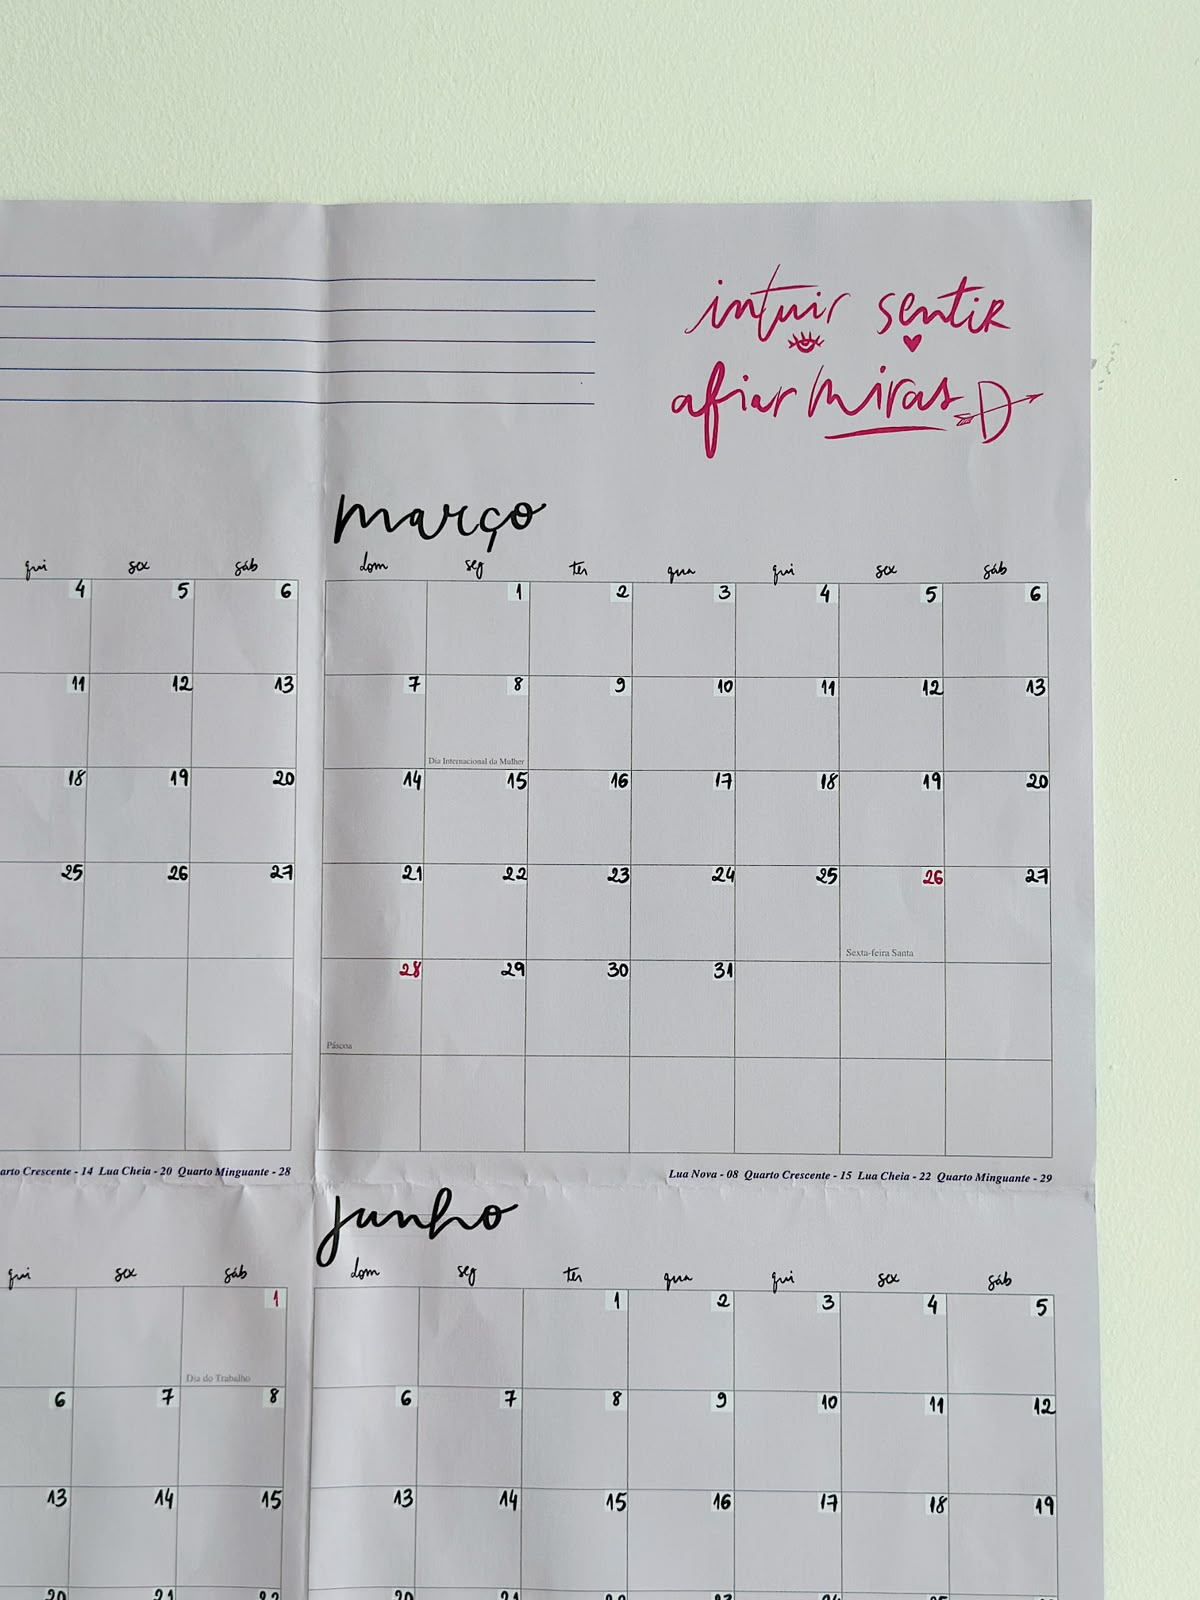 intuir sentir
afiar miras
março
qui sex sáb
4 5 6
11 12 13
18 19 20
25 26 27
dom seg ter qua qui sex sáb
1 2 3 4 5 6
7 8 9 10 11 12 13
Dia Internacional da Mulher
14 15 16 17 18 19 20
21 22 23 24 25 26 27
Sexta-feira Santa
28 29 30 31
Páscoa
arto Crescente - 14 Lua Cheia - 20 Quarto Minguante - 28
Lua Nova - 08 Quarto Crescente - 15 Lua Cheia - 22 Quarto Minguante - 29
junho
qui sex sáb
1
Dia do Trabalho
6 7 8
13 14 15
20 21 22
dom seg ter qua qui sex sáb
1 2 3 4 5
6 7 8 9 10 11 12
13 14 15 16 17 18 19
20 21 22 23 24 25